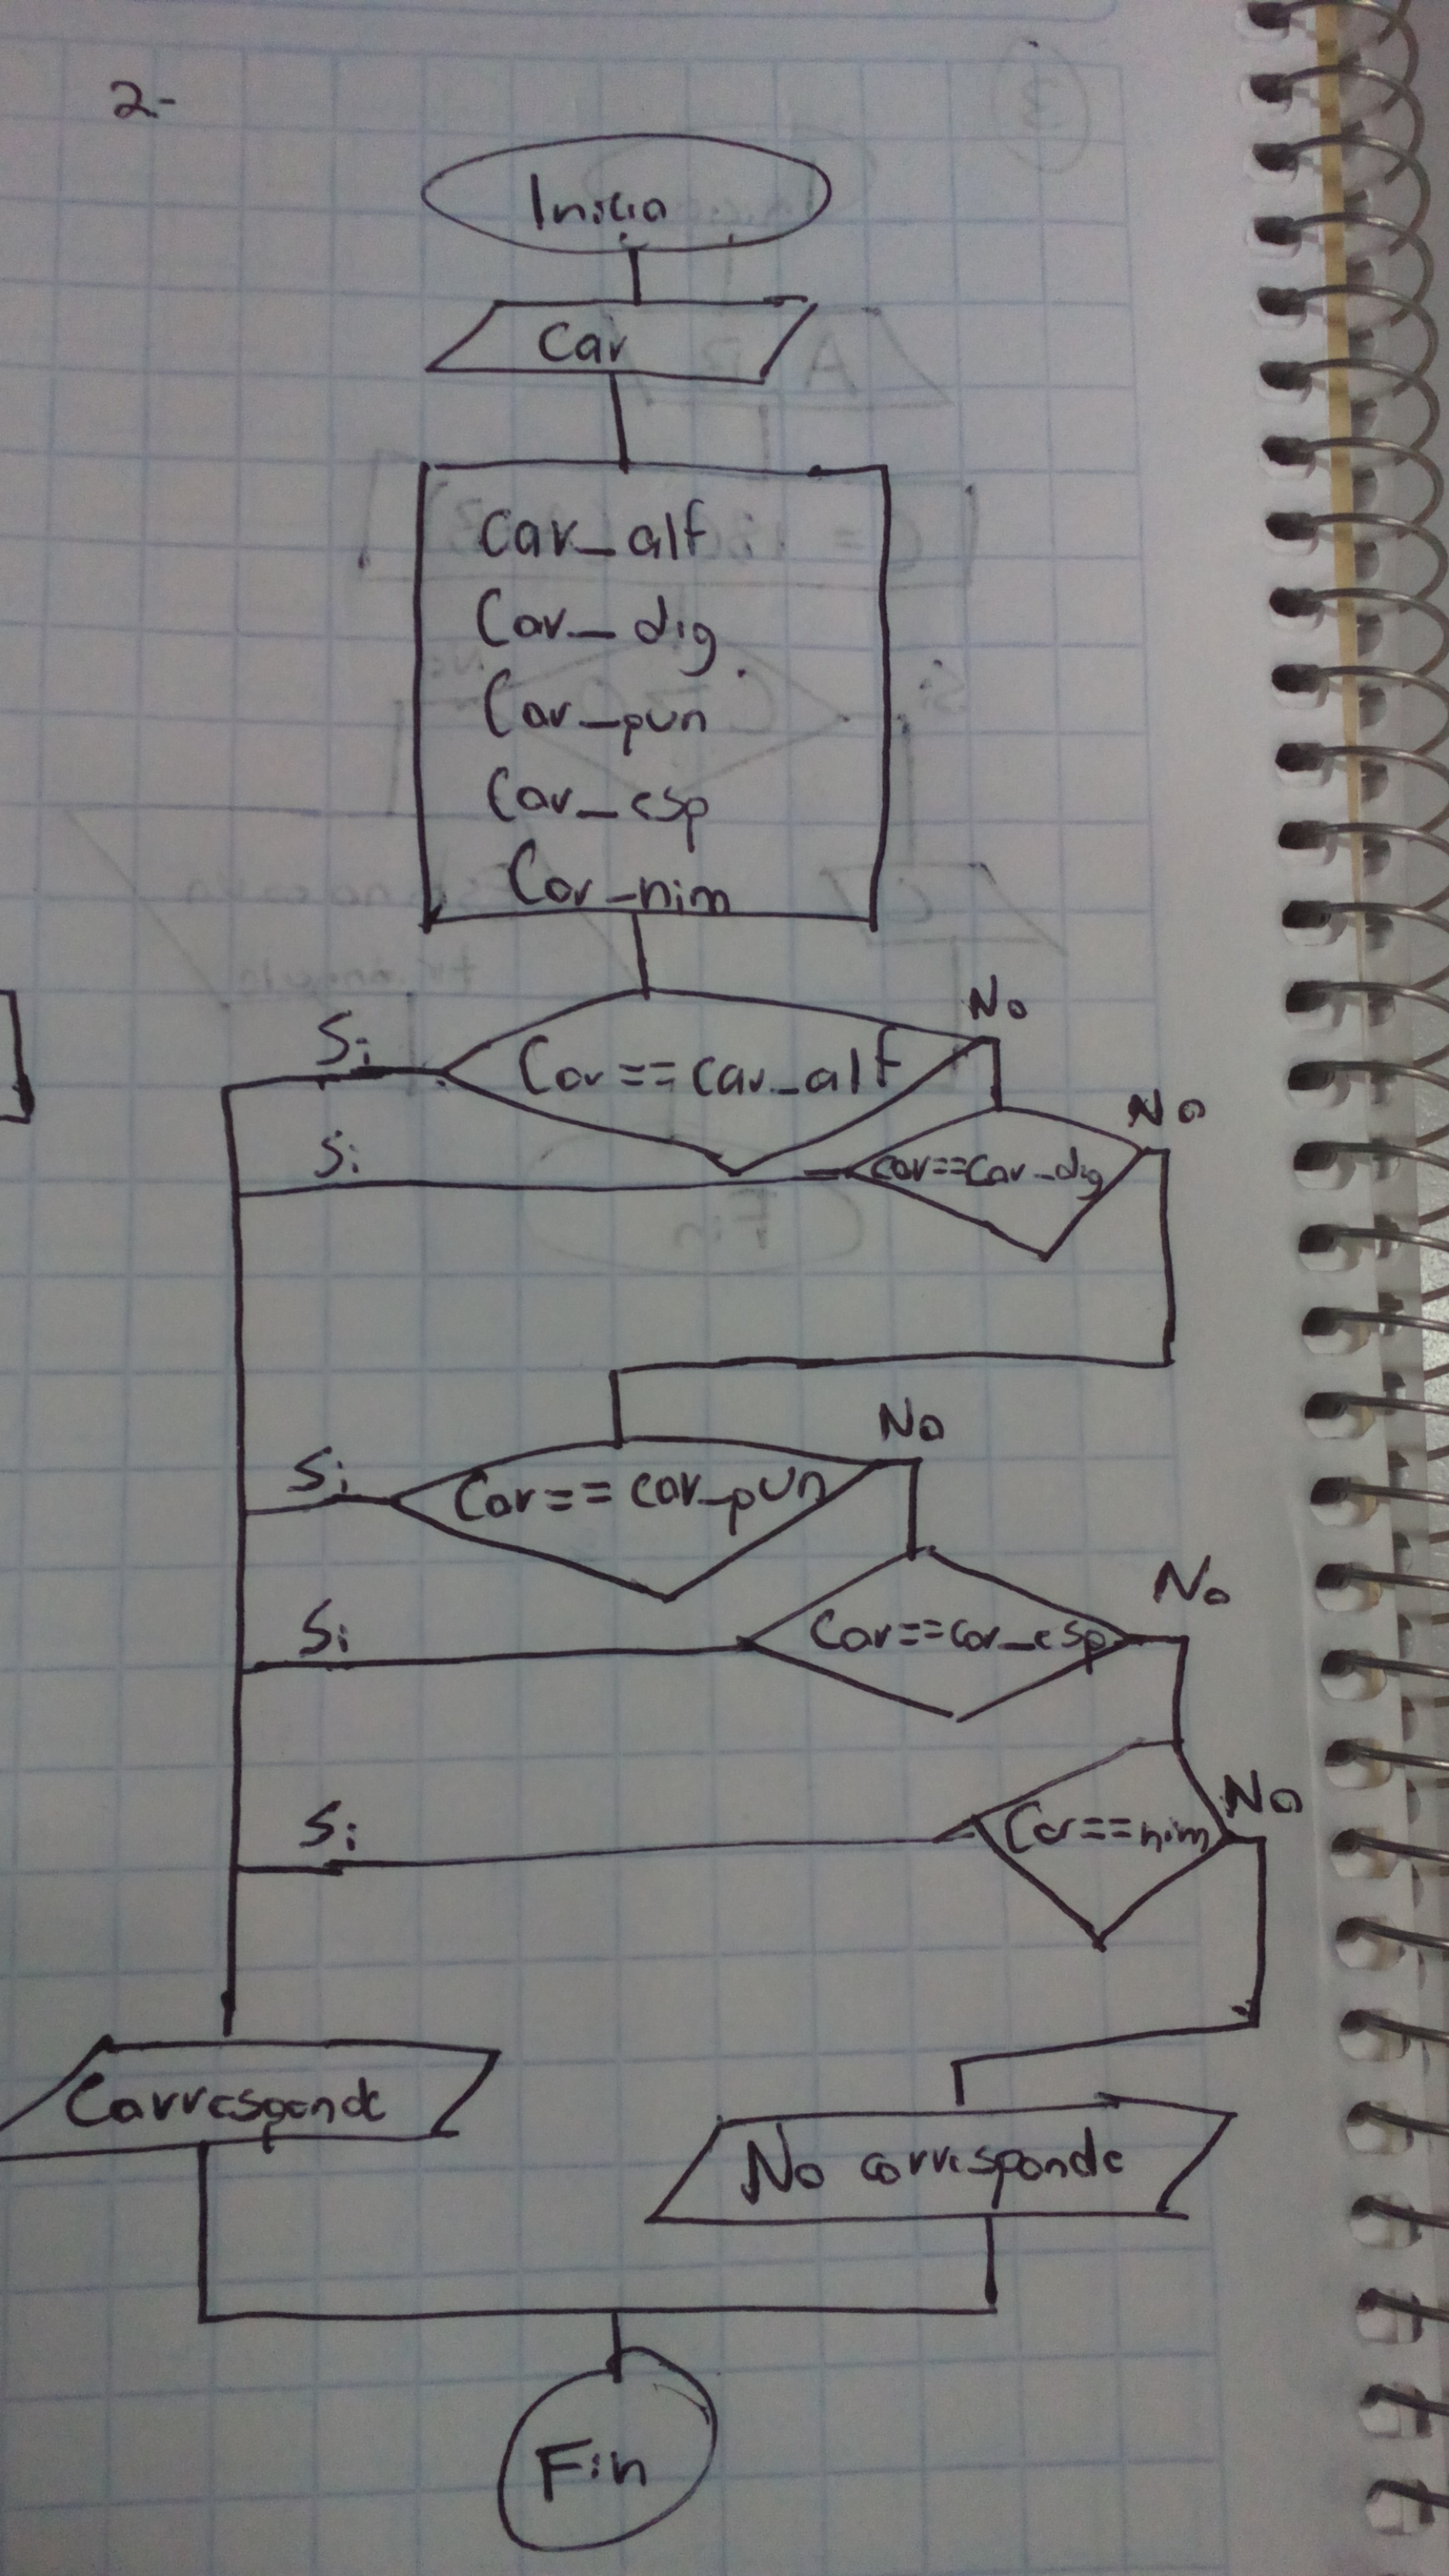 2-
Inicio
Car
Car_alf
Car_dig
Car_pun
Car_esp
Car_nim
Si
Car==car_alf
No
Si
car==Car_dig
No
Si
Car==car_pun
No
Si
Car==car_esp
No
Si
Car==nim
No
Corresponde
No corresponde
Fin